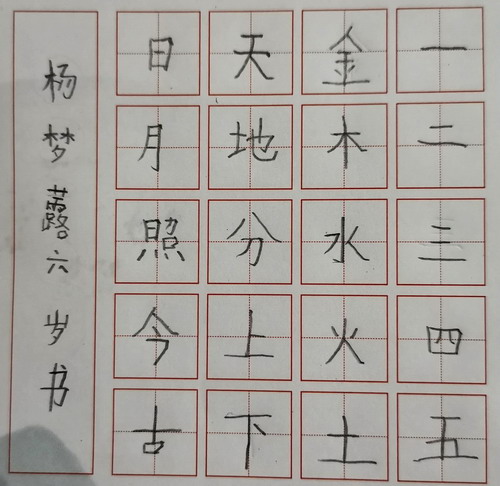 一二三四五
金木水火土
天地分上下
日月照今古
杨梦露六岁书